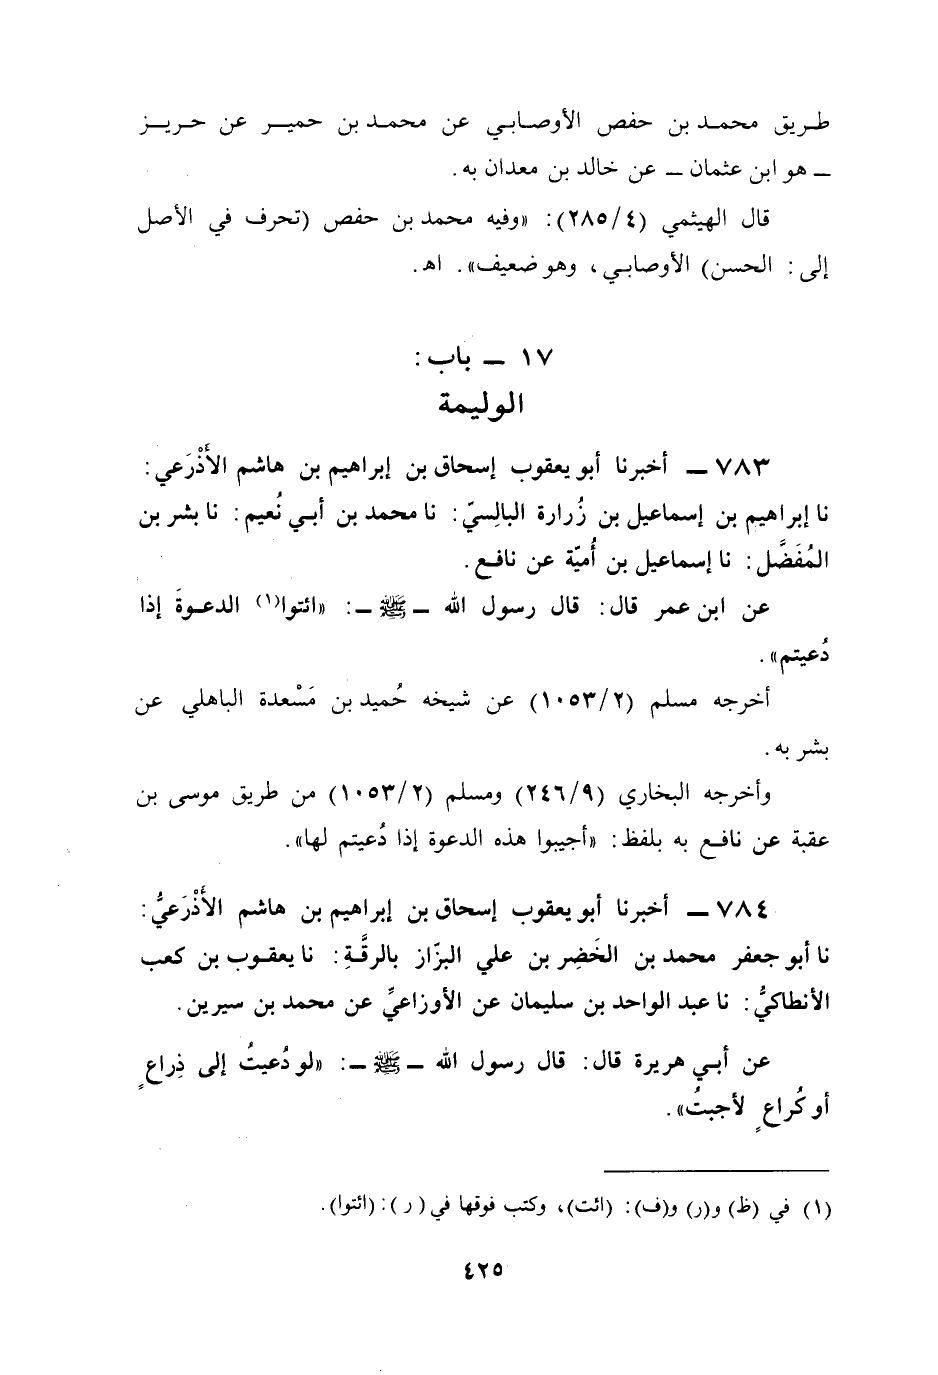 طريق محمد بن حفص الأوصابي عن محمد بن حمير عن حريز
ــ هو ابن عثمان ــ عن خالد بن معدان به.
قال الهيثمي (٢٨٥/٤): «وفيه محمد بن حفص (تحرف في الأصل
إلى: الحسن) الأوصابي، وهو ضعيف». اهـ.
١٧ ــ باب:
الوليمة
٧٨٣ ــ أخبرنا أبو يعقوب إسحاق بن إبراهيم بن هاشم الأَذْرَعي:
نا إبراهيم بن إسماعيل بن زُرارة البالِسيّ: نا محمد بن أبي نُعيم: نا بشر بن
المُفَضَّل: نا إسماعيل بن أُميّة عن نافع.
عن ابن عمر قال: قال رسول الله ــ ﷺ ــ: «ائتوا(١) الدعوةَ إذا
دُعيتم».
أخرجه مسلم (١٠٥٣/٢) عن شيخه حُميد بن مَسْعدة الباهلي عن
بشر به.
وأخرجه البخاري (٢٤٦/٩) ومسلم (١٠٥٣/٢) من طريق موسى بن
عقبة عن نافع به بلفظ: «أجيبوا هذه الدعوة إذا دُعيتم لها».
٧٨٤ ــ أخبرنا أبو يعقوب إسحاق بن إبراهيم بن هاشم الأَذْرَعيُّ:
نا أبو جعفر محمد بن الخَضِر بن علي البزّاز بالرقَّةِ: نا يعقوب بن كعب
الأنطاكيُّ: نا عبد الواحد بن سليمان عن الأوزاعيِّ عن محمد بن سيرين.
عن أبي هريرة قال: قال رسول الله ــ ﷺ ــ: «لو دُعيتُ إلى ذِراعٍ
أو كُراعٍ لأجبتُ».
(١) في (ظ) و(ر) و(ف): (ائت)، وكتب فوقها في (ر): (ائتوا).
٤٢٥